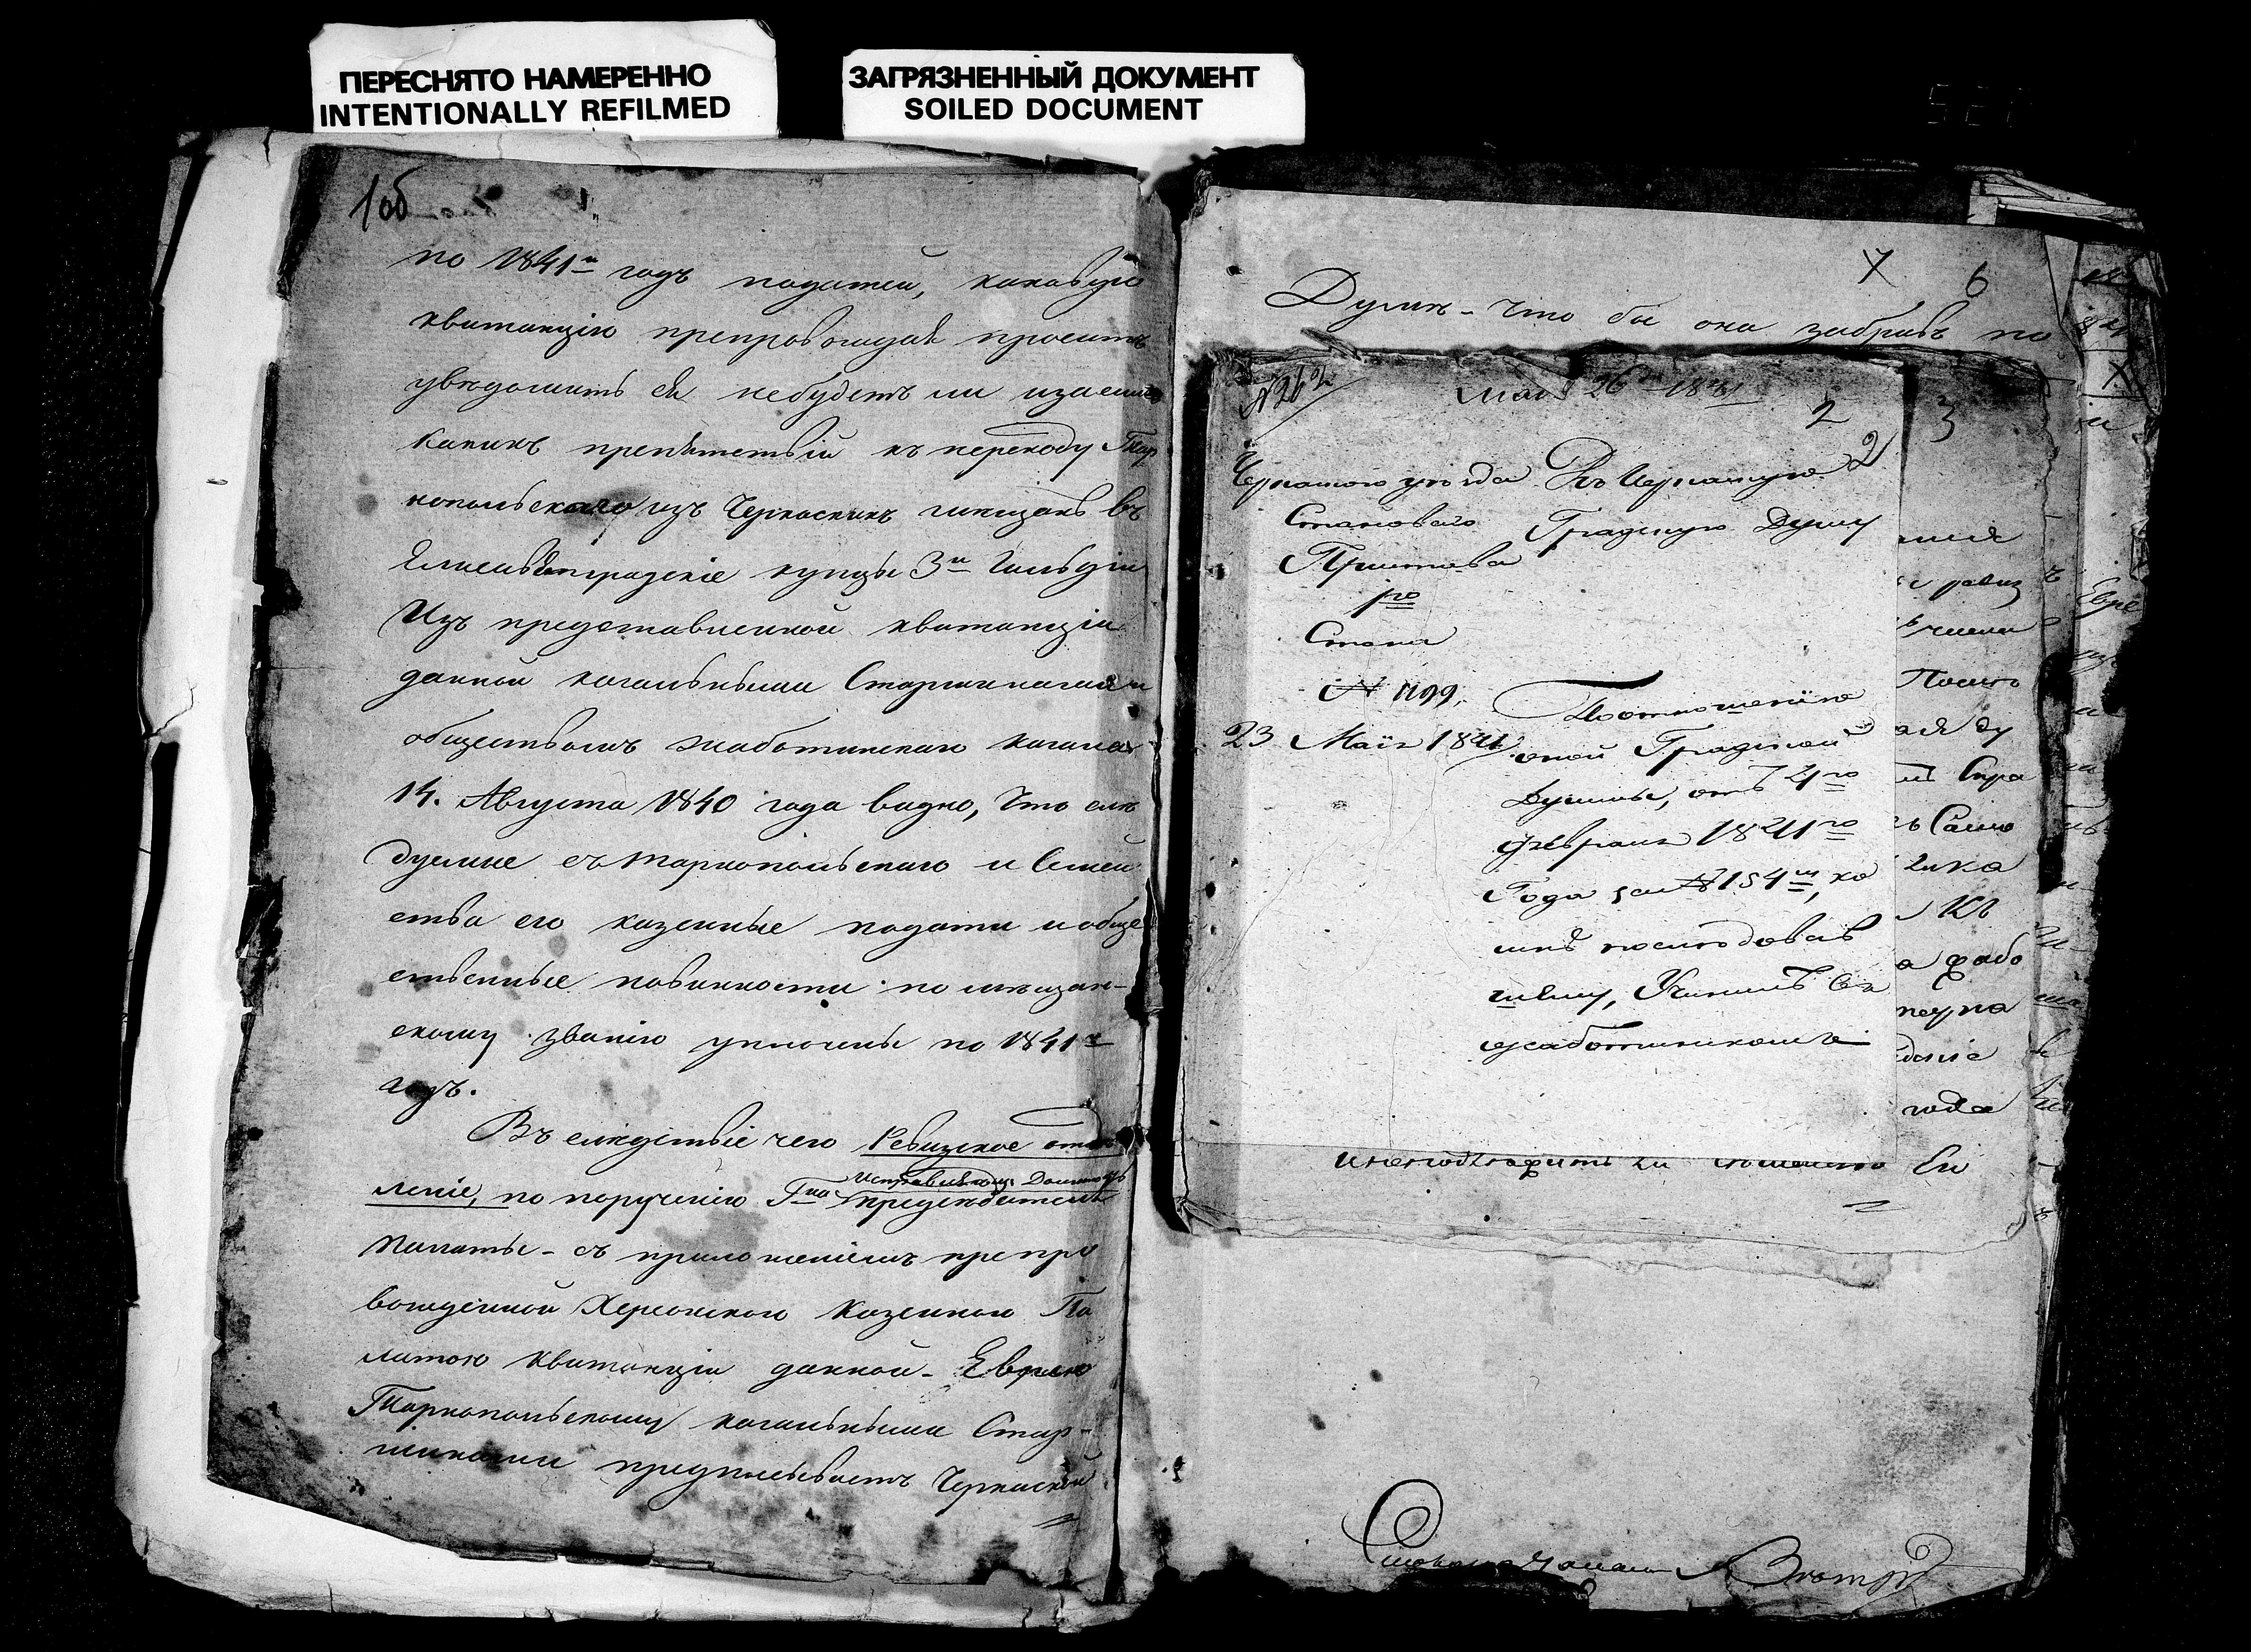 ПЕРЕСНЯТО НАМЕРЕННО
INTENTIONALLY REFILMED
ЗАГРЯЗНЕННЫЙ ДОКУМЕНТ
SOILED DOCUMENT
1об
по 1841й годъ податей, каковую
квитанцію препровождая проситъ
увѣдомить ея небудетъ ли изъ ейнаго
какихъ препятствій къ переходу Тар
нопольскаго изъ Черкаскихъ мѣщанъ въ
Елисаветградскіе купцы 3й Гильдіи
Изъ представленной квитанціи
данной кагальными Старшинами и
обществомъ Жаботинскаго кагала
14. Августа 1840 года видно, что слѣ
дуемые съ Тарнопольскаго и Семей
ства его казенные подати и обще
ственные повинности по мѣщан-
скому званію уплочены по 1841й
годъ.
Въ слѣдствіе чего Ревизское отдѣ
леніе, по порученію Гна Исправляющ. Должность
предсѣдателя
Палаты - съ приложеніемъ препро
вожденной Херсонскою Казенною Па
латою квитанціи данной - Еврею
Тарнопольскому кагальными Стар-
шинами предписываетъ Черкаской
7 6
Думѣ - что бы она забравъ по
N 262
Мая 26 1841
2
2
3
Черкаскаго уѣзда
Становаго
Пристава
1го
Стана
N 1199.
23 Маія 1841
Въ Черкаскую
Градскую Думу
По отношенію
оной Градской
Думы, отъ 24го
февраля 1841го
Года за N 154м, ко
мнѣ послѣдовав
шему, Учинилъ въ
жаботинскомъ
Посто
ль Спра
Само
Къ
года
Ея